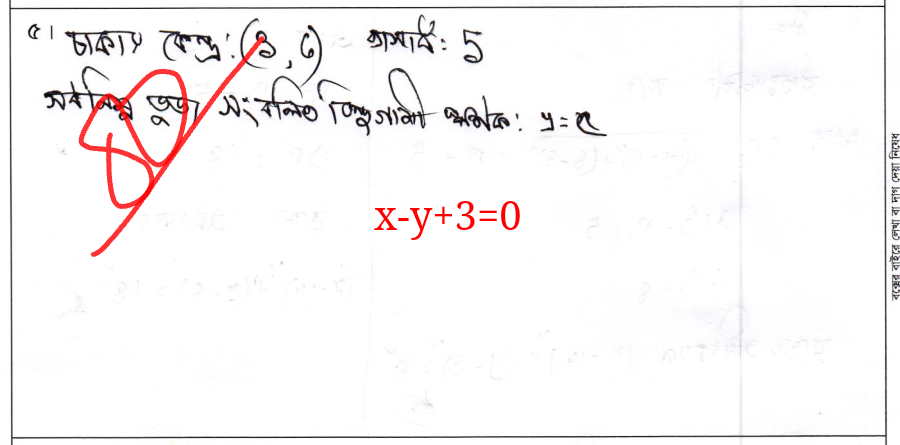 ৫। চাকার কেন্দ্র: (3, 6) ব্যাসার্ধ: 5
সর্বনিম্ন ভুজ সংবলিত বিন্দুগামী স্পর্শক: y =
x-y+3=0
বক্সের বাইরে লেখা বা দাগ দেয়া নিষেধ